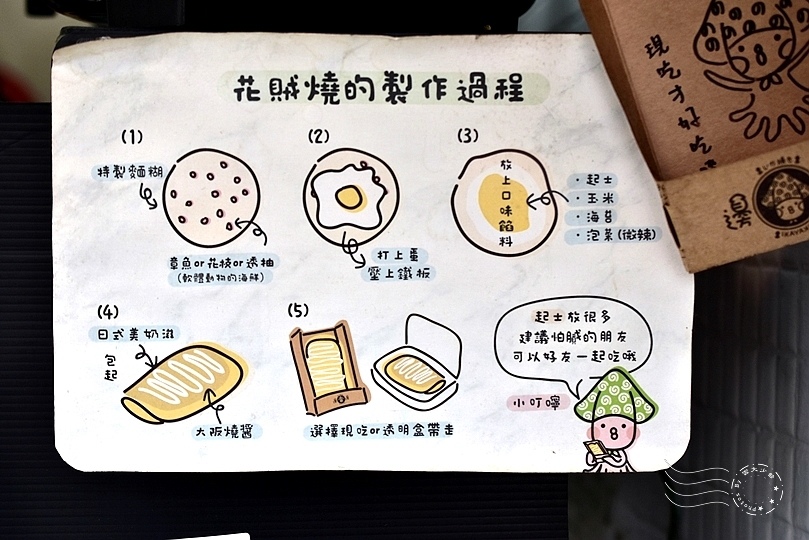 花賊燒的製作過程
(1)
特製麵糊
章魚or花枝or透抽
(軟體動物的海鮮)
(2)
打上蛋
壓上鐵板
(3)
放上口味餡料
・起士
・玉米
・海苔
・泡菜(微辣)
(4)
日式美奶滋
包起
大阪燒醬
(5)
選擇現吃or透明盒帶走
起士放很多
建議怕膩的朋友
可以好友一起吃哦
小叮嚀
現吃才好吃